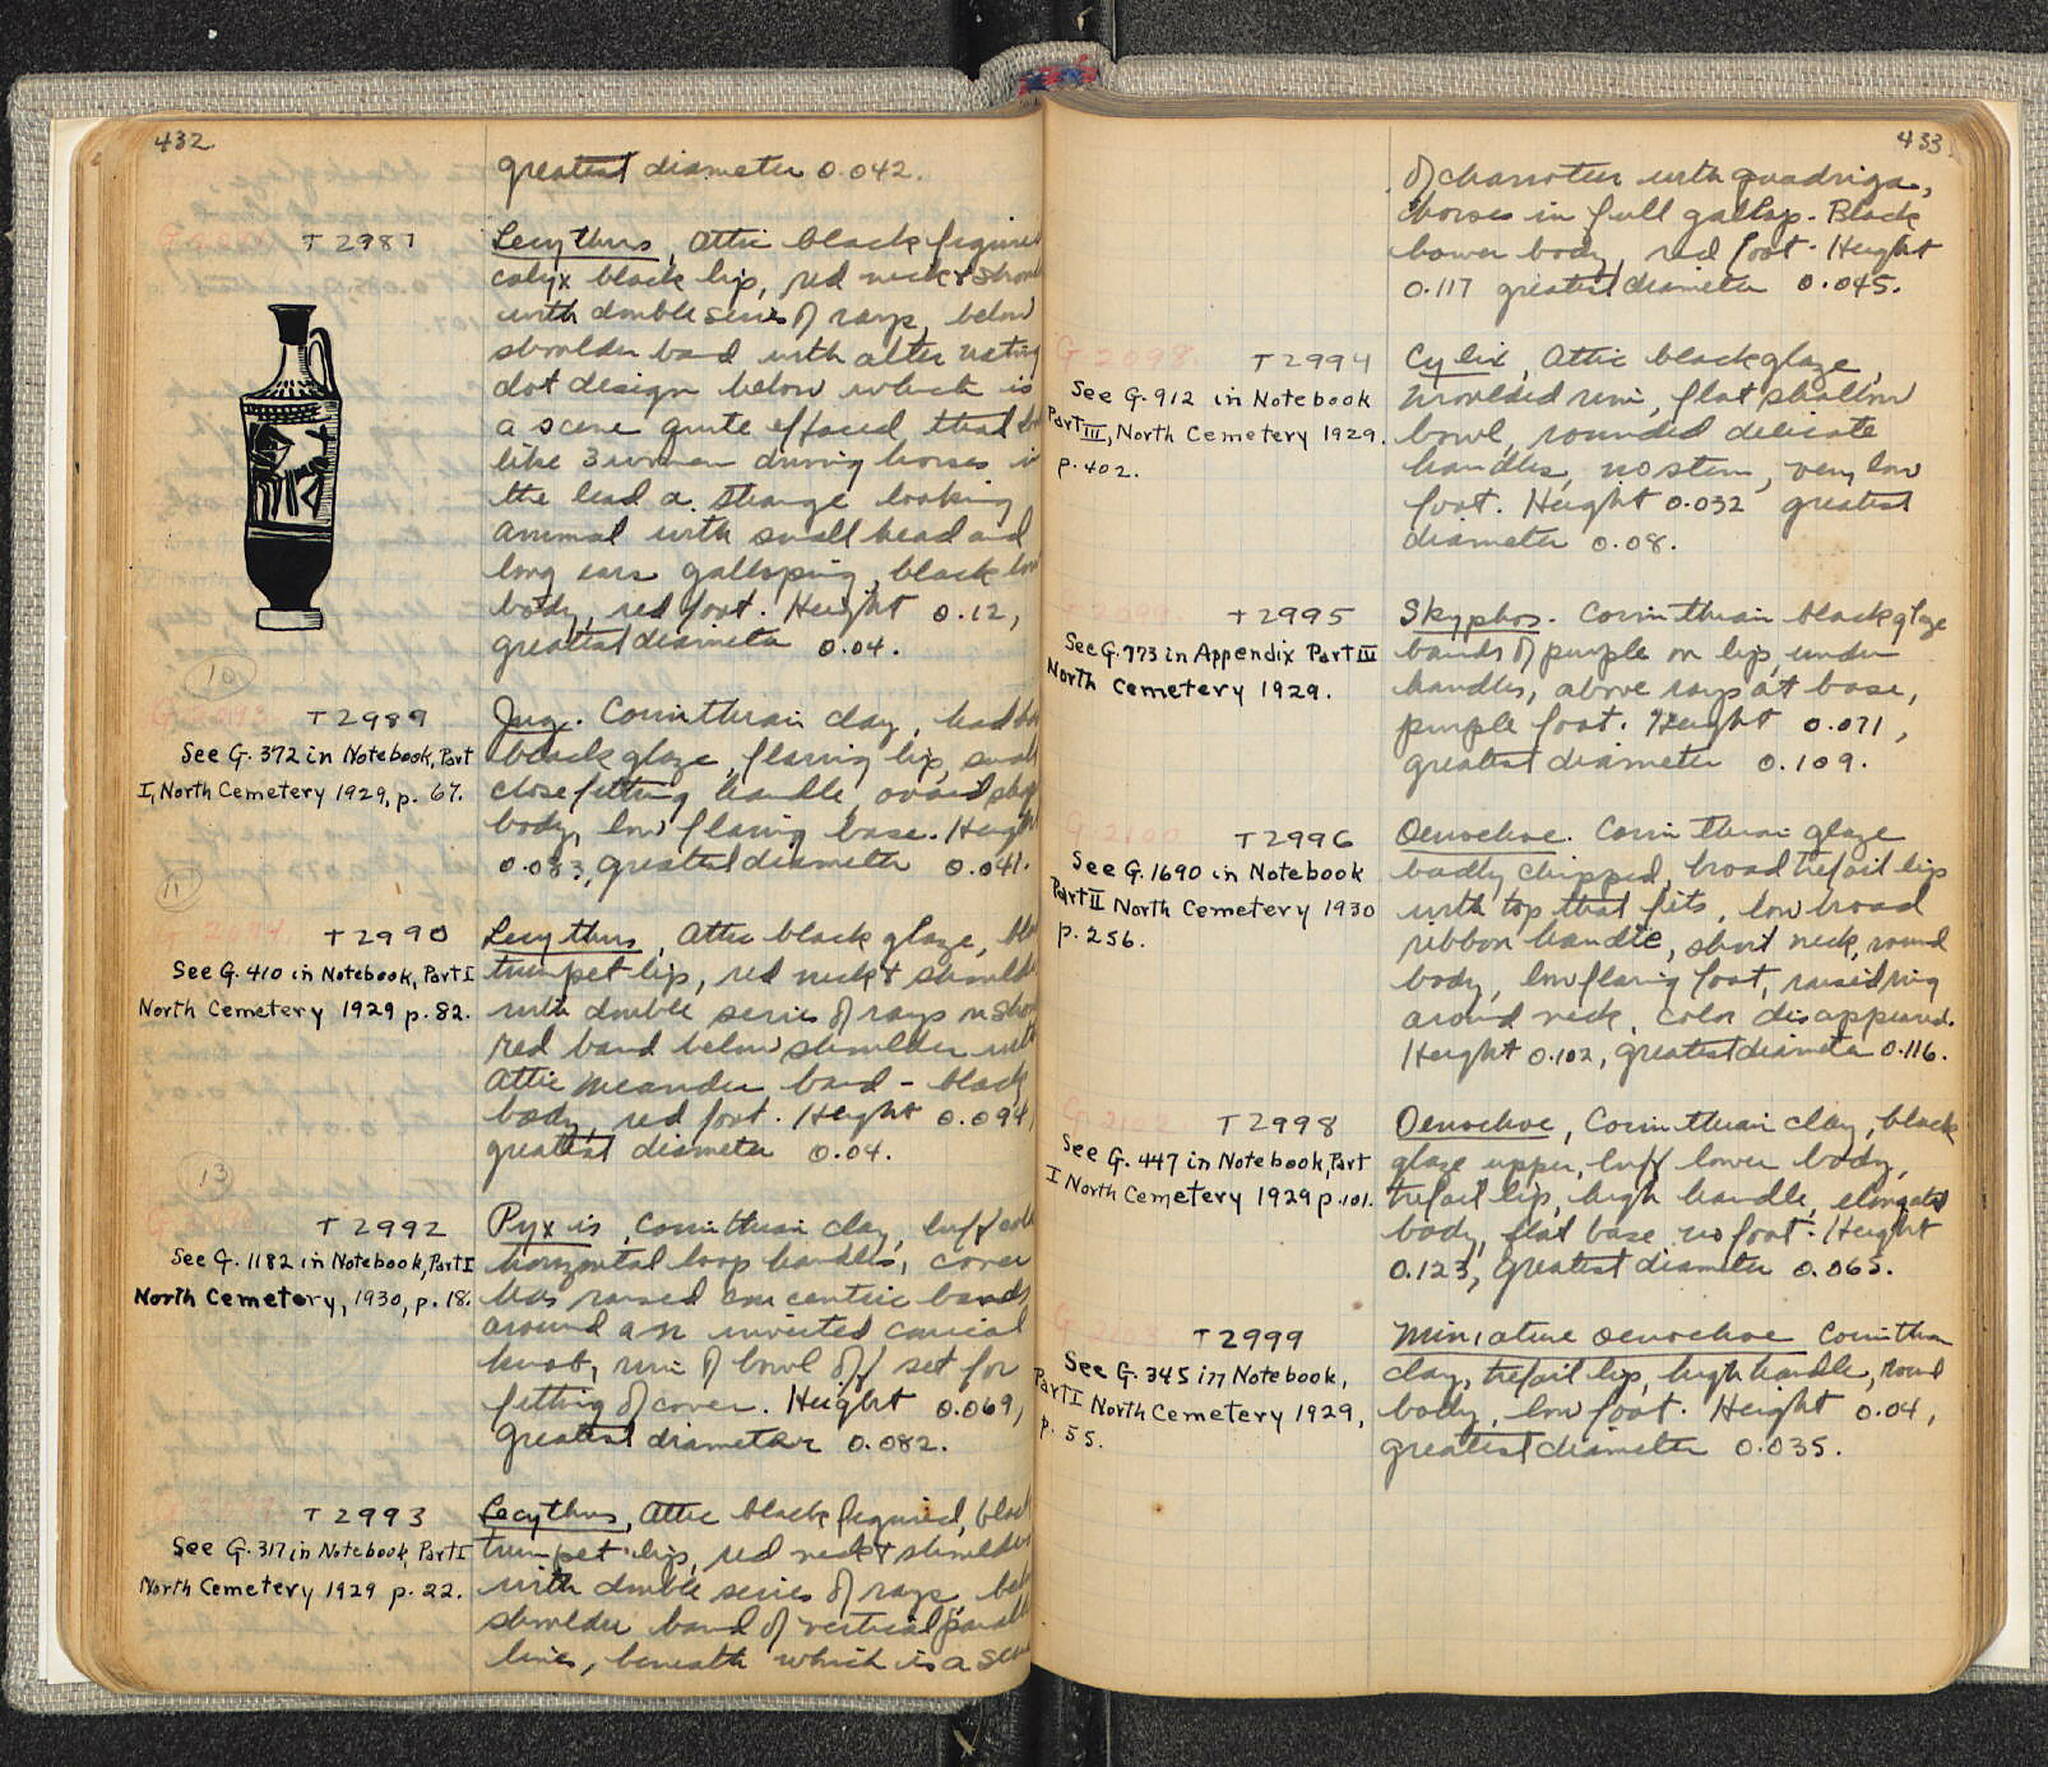 432
greatest diameter 0.042.
T 2987
Lecythus, Attic black figured
calyx black lip, red neck &
with double series of rays, below
shoulder band with alternating
dot design below which is
a scene quite effaced that
like 3 women driving horses in
the lead a strange looking
animal with small head and
long ears galloping, black
body, red foot. Height 0.12,
greatest diameter 0.04.
10
T 2989
See G. 372 in Notebook, Part
I, North Cemetery 1929, p. 67.
Jug. Corinthian clay, had
black glaze, flaring lip, small
close fitting handle, ovoid
body, low flaring base. Height
0.083, greatest diameter 0.041.
11
T 2990
See G. 410 in Notebook, Part I
North Cemetery 1929 p. 82.
Lecythus, Attic black glaze,
trumpet lip, red neck & shoulder
with double series of rays on
red band below shoulder with
Attic meander band - black
body, red foot. Height 0.094,
greatest diameter 0.04.
13
T 2992
See G. 1182 in Notebook, Part I
North Cemetery, 1930, p. 18.
Pyxis, Corinthian clay, buff
horizontal loop handles, cover
has raised concentric bands
around an inverted conical
knob, rim of bowl off set for
fitting of cover. Height 0.069,
Greatest diameter 0.082.
T 2993
See G. 317 in Notebook, Part I
North Cemetery 1929 p. 22.
Lecythus, Attic black figured, black
trumpet lip, red neck & shoulder
with double series of rays, below
shoulder band of vertical
lines, beneath which is a
433
of charioteer with quadriga,
horses in full gallop. Black
lower body, red foot. Height
0.117 greatest diameter 0.045.
G 2098
T 2994
See G. 912 in Notebook
Part III, North Cemetery 1929.
p. 402.
Cylix, Attic black glaze,
moulded rim, flat shallow
bowl, rounded delicate
handles, no stem, very low
foot. Height 0.032 greatest
diameter 0.08.
2099
T 2995
See G. 773 in Appendix Part III
North Cemetery 1929.
Skyphos. Corinthian black glaze
bands of purple on lip, under
handles, above rays at base,
purple foot. Height 0.071,
greatest diameter 0.109.
G 2100
T 2996
See G. 1690 in Notebook
Part II North Cemetery 1930
p. 256.
Oenochoe. Corinthian glaze
badly chipped, broad trefoil lip
with top that fits, low broad
ribbon handle, short neck, round
body, low flaring foot, raised ring
around neck, color disappeared.
Height 0.102, greatest diameter 0.116.
G 2102
T 2998
See G. 447 in Notebook, Part
I North Cemetery 1929 p. 101.
Oenochoe, Corinthian clay, black
glaze upper, buff lower body,
trefoil lip, high handle, elongated
body, flat base no foot. Height
0.123, greatest diameter 0.065.
G 2103
T 2999
See G. 345 in Notebook,
Part I North Cemetery 1929,
p. 55.
Miniature oenochoe Corinthian
clay, trefoil lip, high handle, round
body, low foot. Height 0.04,
greatest diameter 0.035.